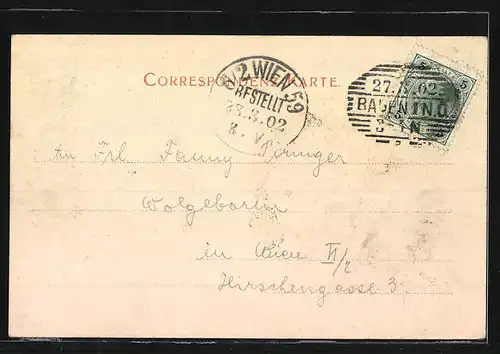 CORRESPONDENZ-KARTE.
6/2 WIEN 59
BESTELLT
28.3.02
8. V.
5 5
27.3.02
BADEN IN N.Ö.
An Frl Fanny Piringer
Wolgeborin
in Wien VI/2
Hirschengasse 3